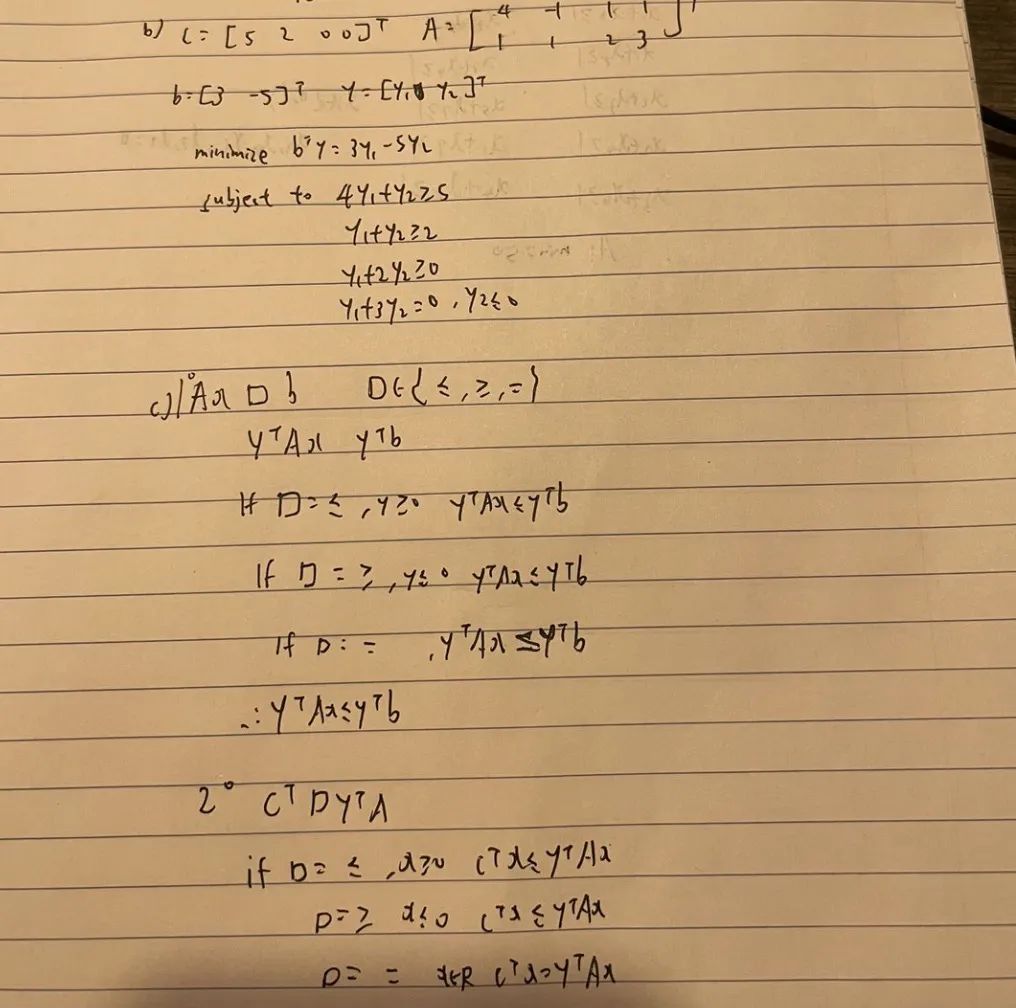 b) C = [5 2 0 0]ᵀ A = [4 -1 1 1
1 1 2 3]ᵀ
b = [3 -5]ᵀ Y = [Y₁ Y₂]ᵀ
minimize bᵀY = 3Y₁ - 5Y₂
subject to 4Y₁ + Y₂ ≥ 5
Y₁ + Y₂ ≥ 2
Y₁ + 2Y₂ ≥ 0
Y₁ + 3Y₂ = 0 , Y₂ ≤ 0
c) 1° Ax □ b □ ∈ { ≤ , ≥ , = }
YᵀAx Yᵀb
If □ = ≤ , Y ≥ 0 YᵀAx ≤ Yᵀb
If □ = ≥ , Y ≤ 0 YᵀAx ≤ Yᵀb
If □ : = , YᵀAx ≤ Yᵀb
∴ YᵀAx ≤ Yᵀb
2° Cᵀ □ YᵀA
if □ = ≤ , x ≥ 0 Cᵀx ≤ YᵀAx
□ = ≥ x ≤ 0 Cᵀx ≤ YᵀAx
□ = = x ∈ R Cᵀx = YᵀAx